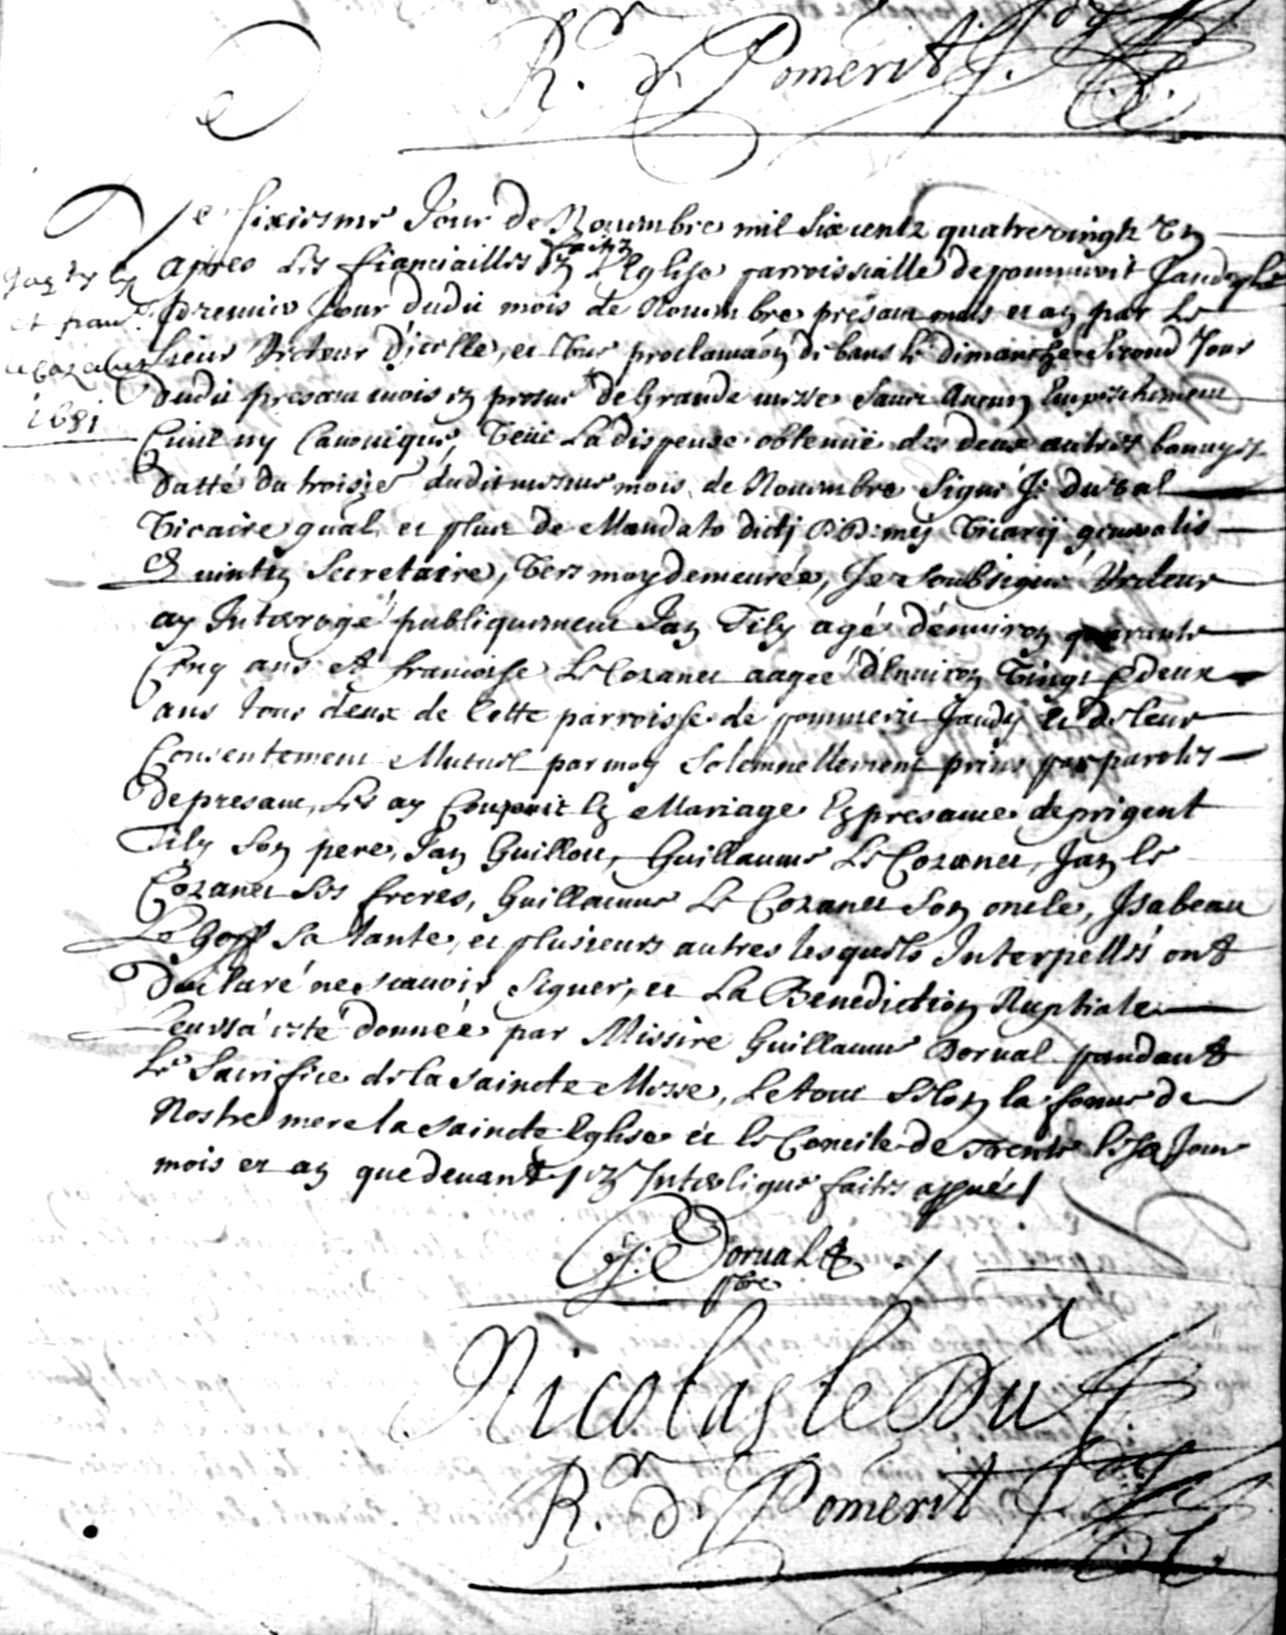 R.r de Pomerit J.
Jan Tily
et franc.
le cozanet
1681
Le sixiesme Jour de Nouembre mil six centz quatre vingtz Un
apres les fianciailles faites En L'Eglise parroissialle de pommerit Jaudy le
premier Jour dudit mois de Nouembre presant mois et an par le
sieur Recteur d'icelle, et Une proclamaon de bans le dimanche second Jour
dudit presant mois en prosne de Grande messe sans Aucun Empeschement
Ciuil ny Canonique, Veüe La dispense obtenüe des deux autres bannyes
datté du troisie dudit mesme mois de Nouembre Signé J. du Val
Vicaire gnal, et plus de Mandato dicti D.D. mei Vicarij generalis
Quintin Secretaire, Vers moy demeurée, Je soubsigné Recteur
ay Interrogé publiquement Jan Tily agé d'enuiron quarante
Cinq ans et francoise Le Cozanet aagée d'Enuiron Vingt et deux
ans tous deux de Cette parroisse de pommerit Jaudy et de leur
Consentement Mutuel par moy Solemnellement prins par parolles
de presant, Les ay Conjoint En Mariage En presance de prigent
Tily son pere, Jan Guillou, Guillaume Le Cozanet, Jan le
Cozanet ses freres, Guillaume Le Cozanet son oncle, Isabeau
Le Goff sa tante, et plusieurs autres lesquels Interpellés ont
declaré ne scauoir signer, et La Benediction Nuptiale
leurs a esté donnée par Missire Guillaume Dorual pandant
Le Sacrifice de la Saincte Messe, Le tout selon la forme de
Nostre mere la Saincte Eglise et le Concile de Trente lesd Jour
mois et an que deuant / En Interligne faites appué /
G: Dorual
pbre
Nicolas le Du
R.r de Pomerit J.